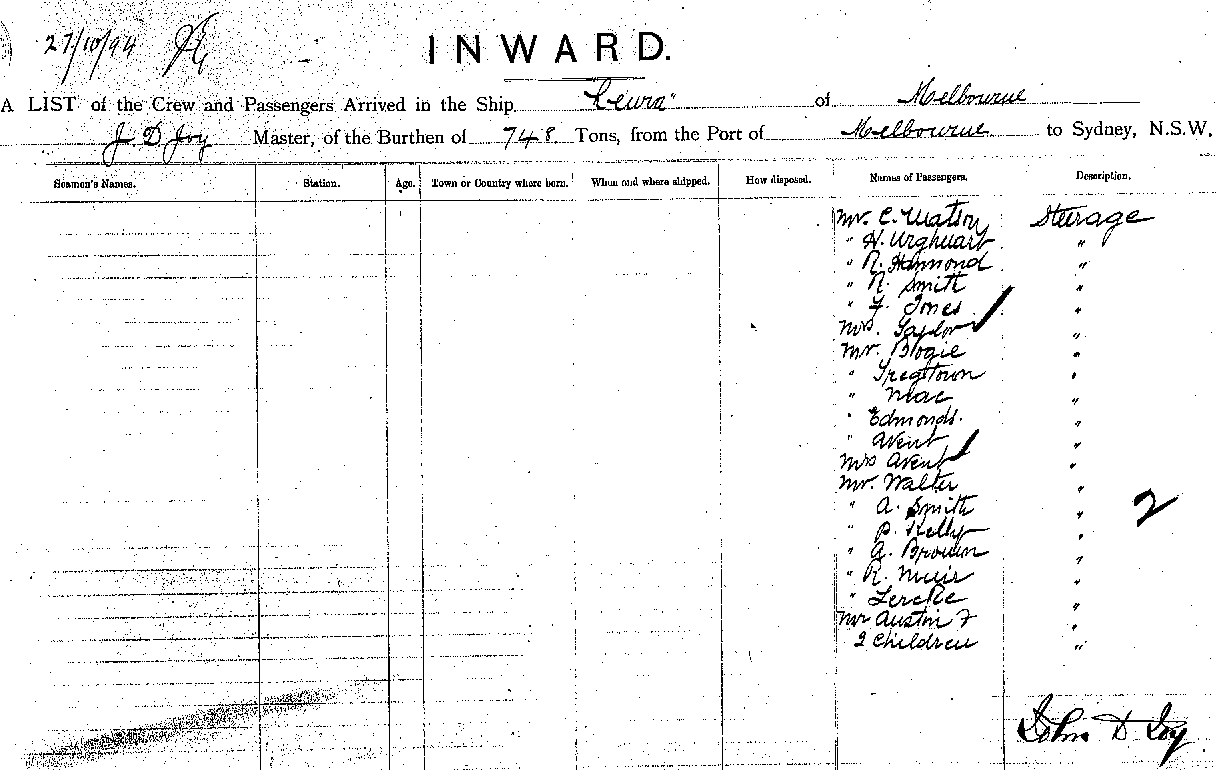 27/10/94
INWARD.
A LIST of the Crew and Passengers Arrived in the Ship "Leura" of Melbourne
J. D Joy Master, of the Burthen of 748 Tons, from the Port of Melbourne to Sydney, N.S.W.
Seamen's Names. Station. Age. Town or Country where born. When and where shipped. How disposed. Names of Passengers. Description.
Mr. C. Watson Steerage
" H. Urghuart "
" R. Hammond "
" R. Smith "
" F. Jones "
Mrs. Taylor "
Mr. Blogie "
" Tregtown "
" "
" Edmonds. "
" Avent "
Mrs Avent "
Mr. Walter "
" A. Smith " 2
" P. Kelly "
" G. Brown "
" R. Muir "
" Lercke "
Mr Austin & "
2 Children "
John D Joy